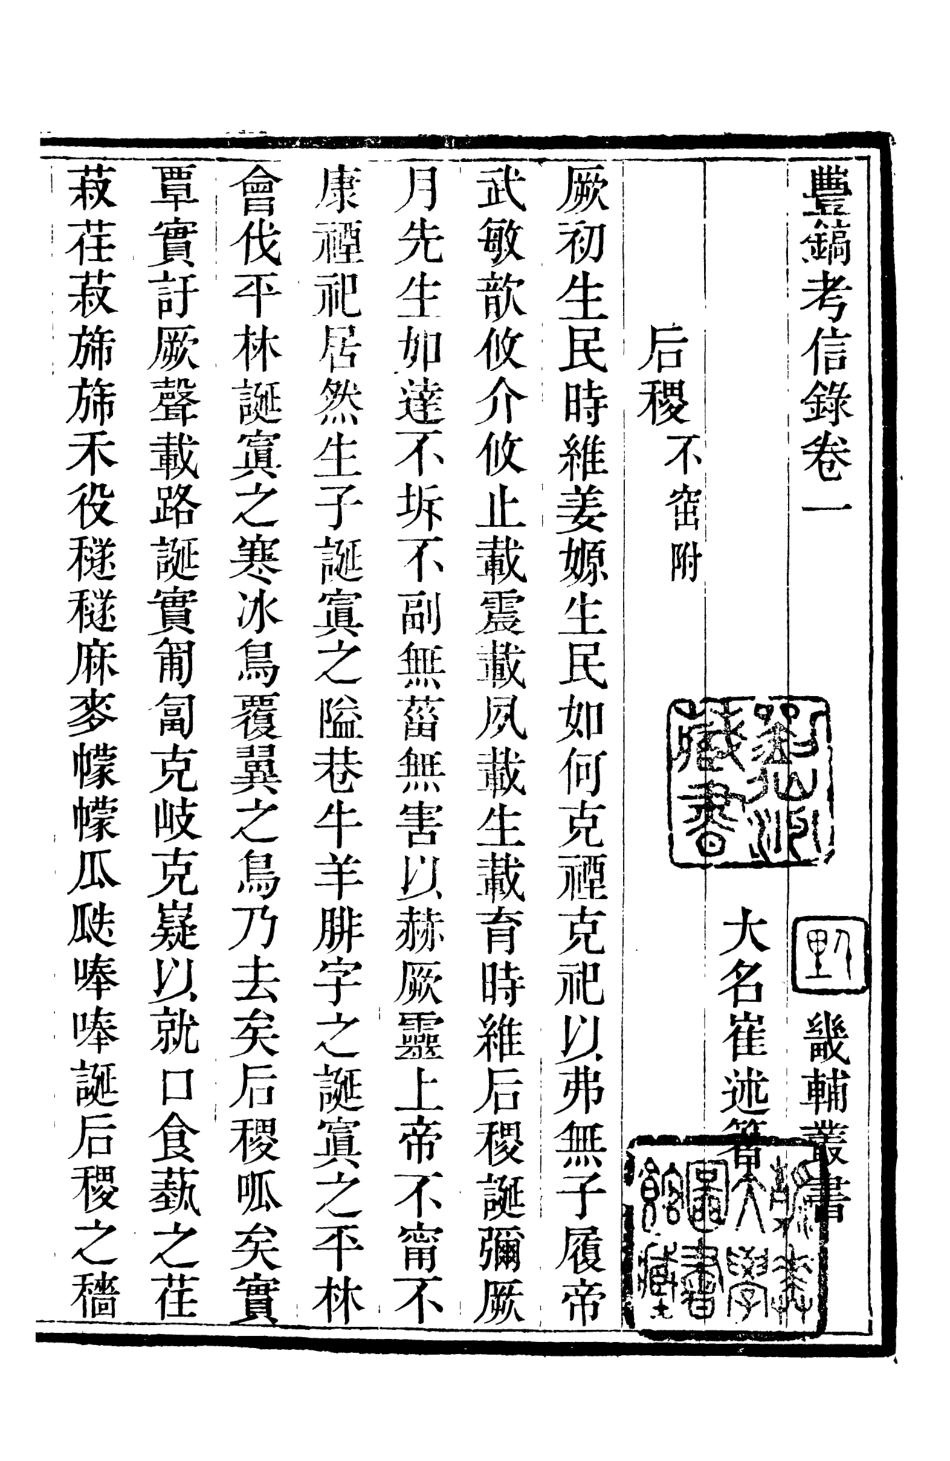 豐鎬考信錄卷一
畿輔叢書
大名崔述著
后稷不窋附
厥初生民時維姜嫄生民如何克禋克祀以弗無子履帝
武敏歆攸介攸止載震載夙載生載育時維后稷誕彌厥
月先生如達不坼不副無菑無害以赫厥靈上帝不甯不
康禋祀居然生子誕寘之隘巷牛羊腓字之誕寘之平林
會伐平林誕寘之寒冰鳥覆翼之鳥乃去矣后稷呱矣實
覃實訏厥聲載路誕實匍匐克岐克嶷以就口食蓺之荏
菽荏菽旆旆禾役穟穟麻麥幪幪瓜瓞唪唪誕后稷之穡
藏書
大學圖書館藏